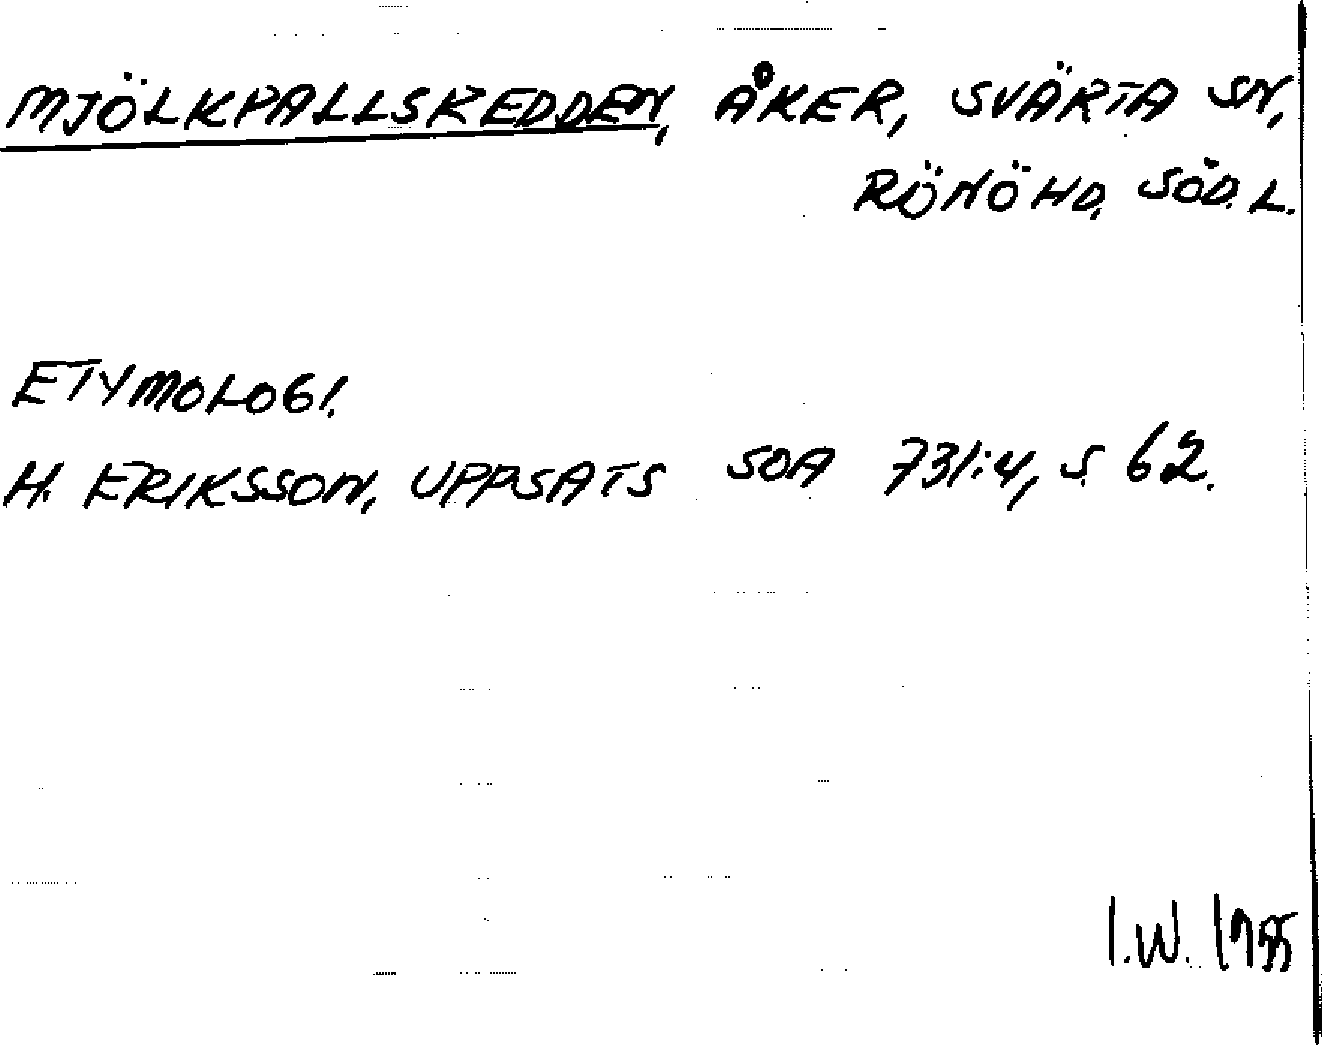 MJÖLKPALLSKEDDEN, ÅKER, SVÄRTA SN,
RÖNÖ HD, SÖD. L.
ETYMOLOGI.
H. ERIKSSON, UPPSATS SOA 731:4, S. 62.
I.W. 1955